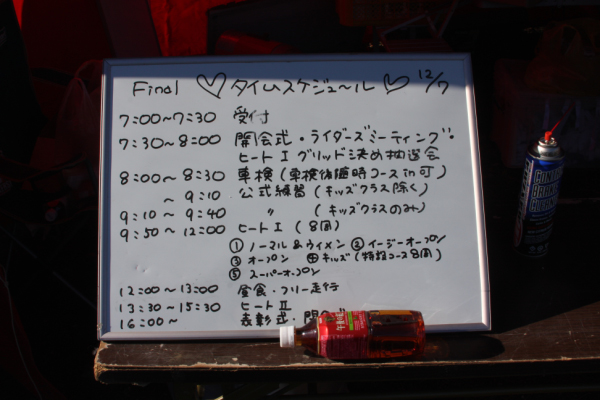 Final ♡タイムスケジュール♡ 12/7
7:00〜7:30 受付
7:30〜8:00 開会式・ライダーズミーティング・
ヒートⅠグリッド決め抽選会
8:00〜8:30 車検(車検後随時コースin可)
〜9:10 公式練習(キッズクラス除く)
9:10〜9:40 〃 (キッズクラスのみ)
9:50〜12:00 ヒートⅠ(8周)
①ノーマル&ウィメン ②イージーオープン
③オープン ④キッズ(特設コース8周)
⑤スーパーオープン
12:00〜13:00 昼食・フリー走行
13:30〜15:30 ヒートⅡ
16:00〜 表彰式・閉
午後の紅茶